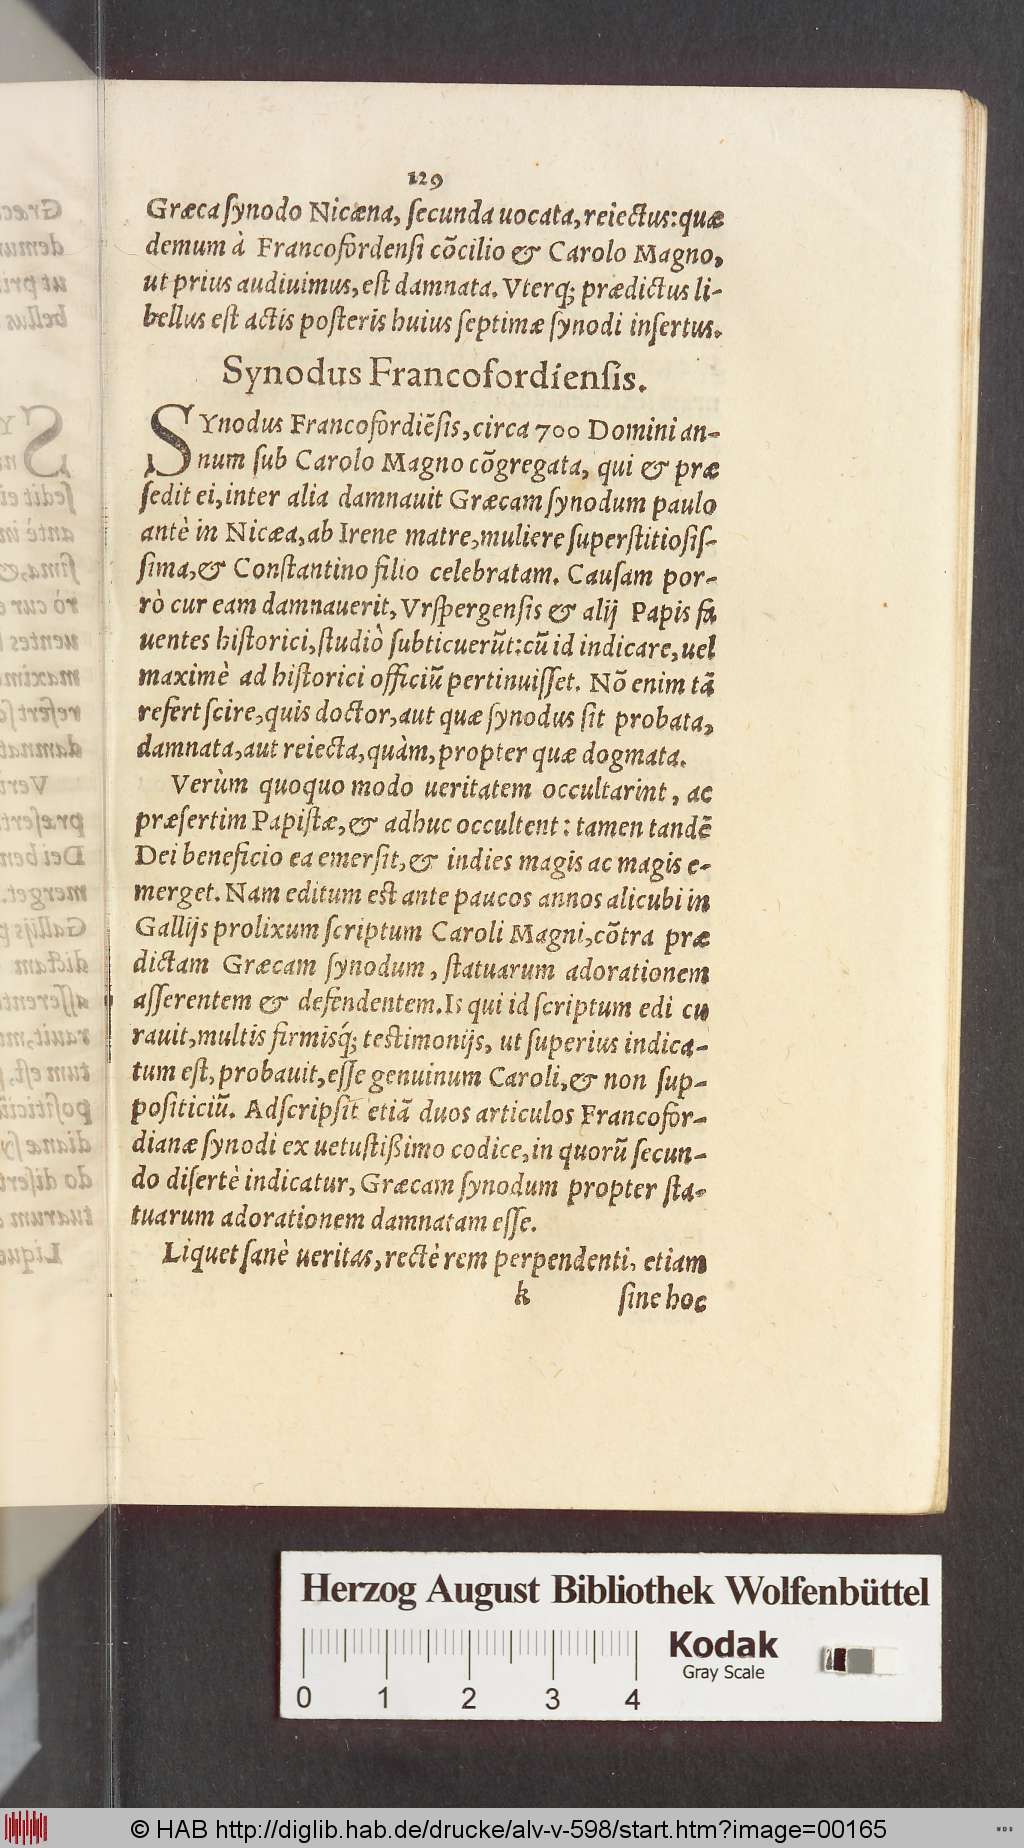 129
Græca ſynodo Nicæna, ſecunda uocata, reiectus: quæ
demum à Francofordenſi cõcilio & Carolo Magno,
ut prius audiuimus, eſt damnata. Vterq; prædictus li-
bellus eſt actis poſteris huius ſeptimæ ſynodi inſertus.
Synodus Francofordienſis.
SYnodus Francofordiẽſis, circa 700 Domini an-
num ſub Carolo Magno cõgregata, qui & præ
ſedit ei, inter alia damnauit Græcam ſynodum paulo
antè in Nicæa, ab Irene matre, muliere ſuperſtitioſiſ-
ſima, & Conſtantino filio celebratam. Cauſam por-
rò cur eam damnauerit, Vrſpergenſis & alij Papis fa
uentes hiſtorici, ſtudiò ſubticuerũt: cũ id indicare, uel
maximè ad hiſtorici officiũ pertinuiſſet. Nõ enim tã
refert ſcire, quis doctor, aut quæ ſynodus ſit probata,
damnata, aut reiecta, quàm, propter quæ dogmata.
Verùm quoquo modo ueritatem occultarint, ac
præſertim Papiſtæ, & adhuc occultent: tamen tandẽ
Dei beneficio ea emerſit, & indies magis ac magis e-
merget. Nam editum eſt ante paucos annos alicubi in
Gallijs prolixum ſcriptum Caroli Magni, cõtra præ
dictam Græcam ſynodum, ſtatuarum adorationem
aſſerentem & defendentem. Is qui id ſcriptum edi cu
rauit, multis firmisq́; teſtimonijs, ut ſuperius indica-
tum eſt, probauit, eſſe genuinum Caroli, & non ſup-
poſiticiũ. Adſcripſit etiã duos articulos Francofor-
dianæ ſynodi ex uetuſtißimo codice, in quorũ ſecun-
do diſertè indicatur, Græcam ſynodum propter ſta-
tuarum adorationem damnatam eſſe.
Liquet ſanè ueritas, rectè rem perpendenti, etiam
k ſine hoc
Herzog August Bibliothek Wolfenbüttel
Kodak
Gray Scale
0 1 2 3 4
© HAB http://diglib.hab.de/drucke/alv-v-598/start.htm?image=00165